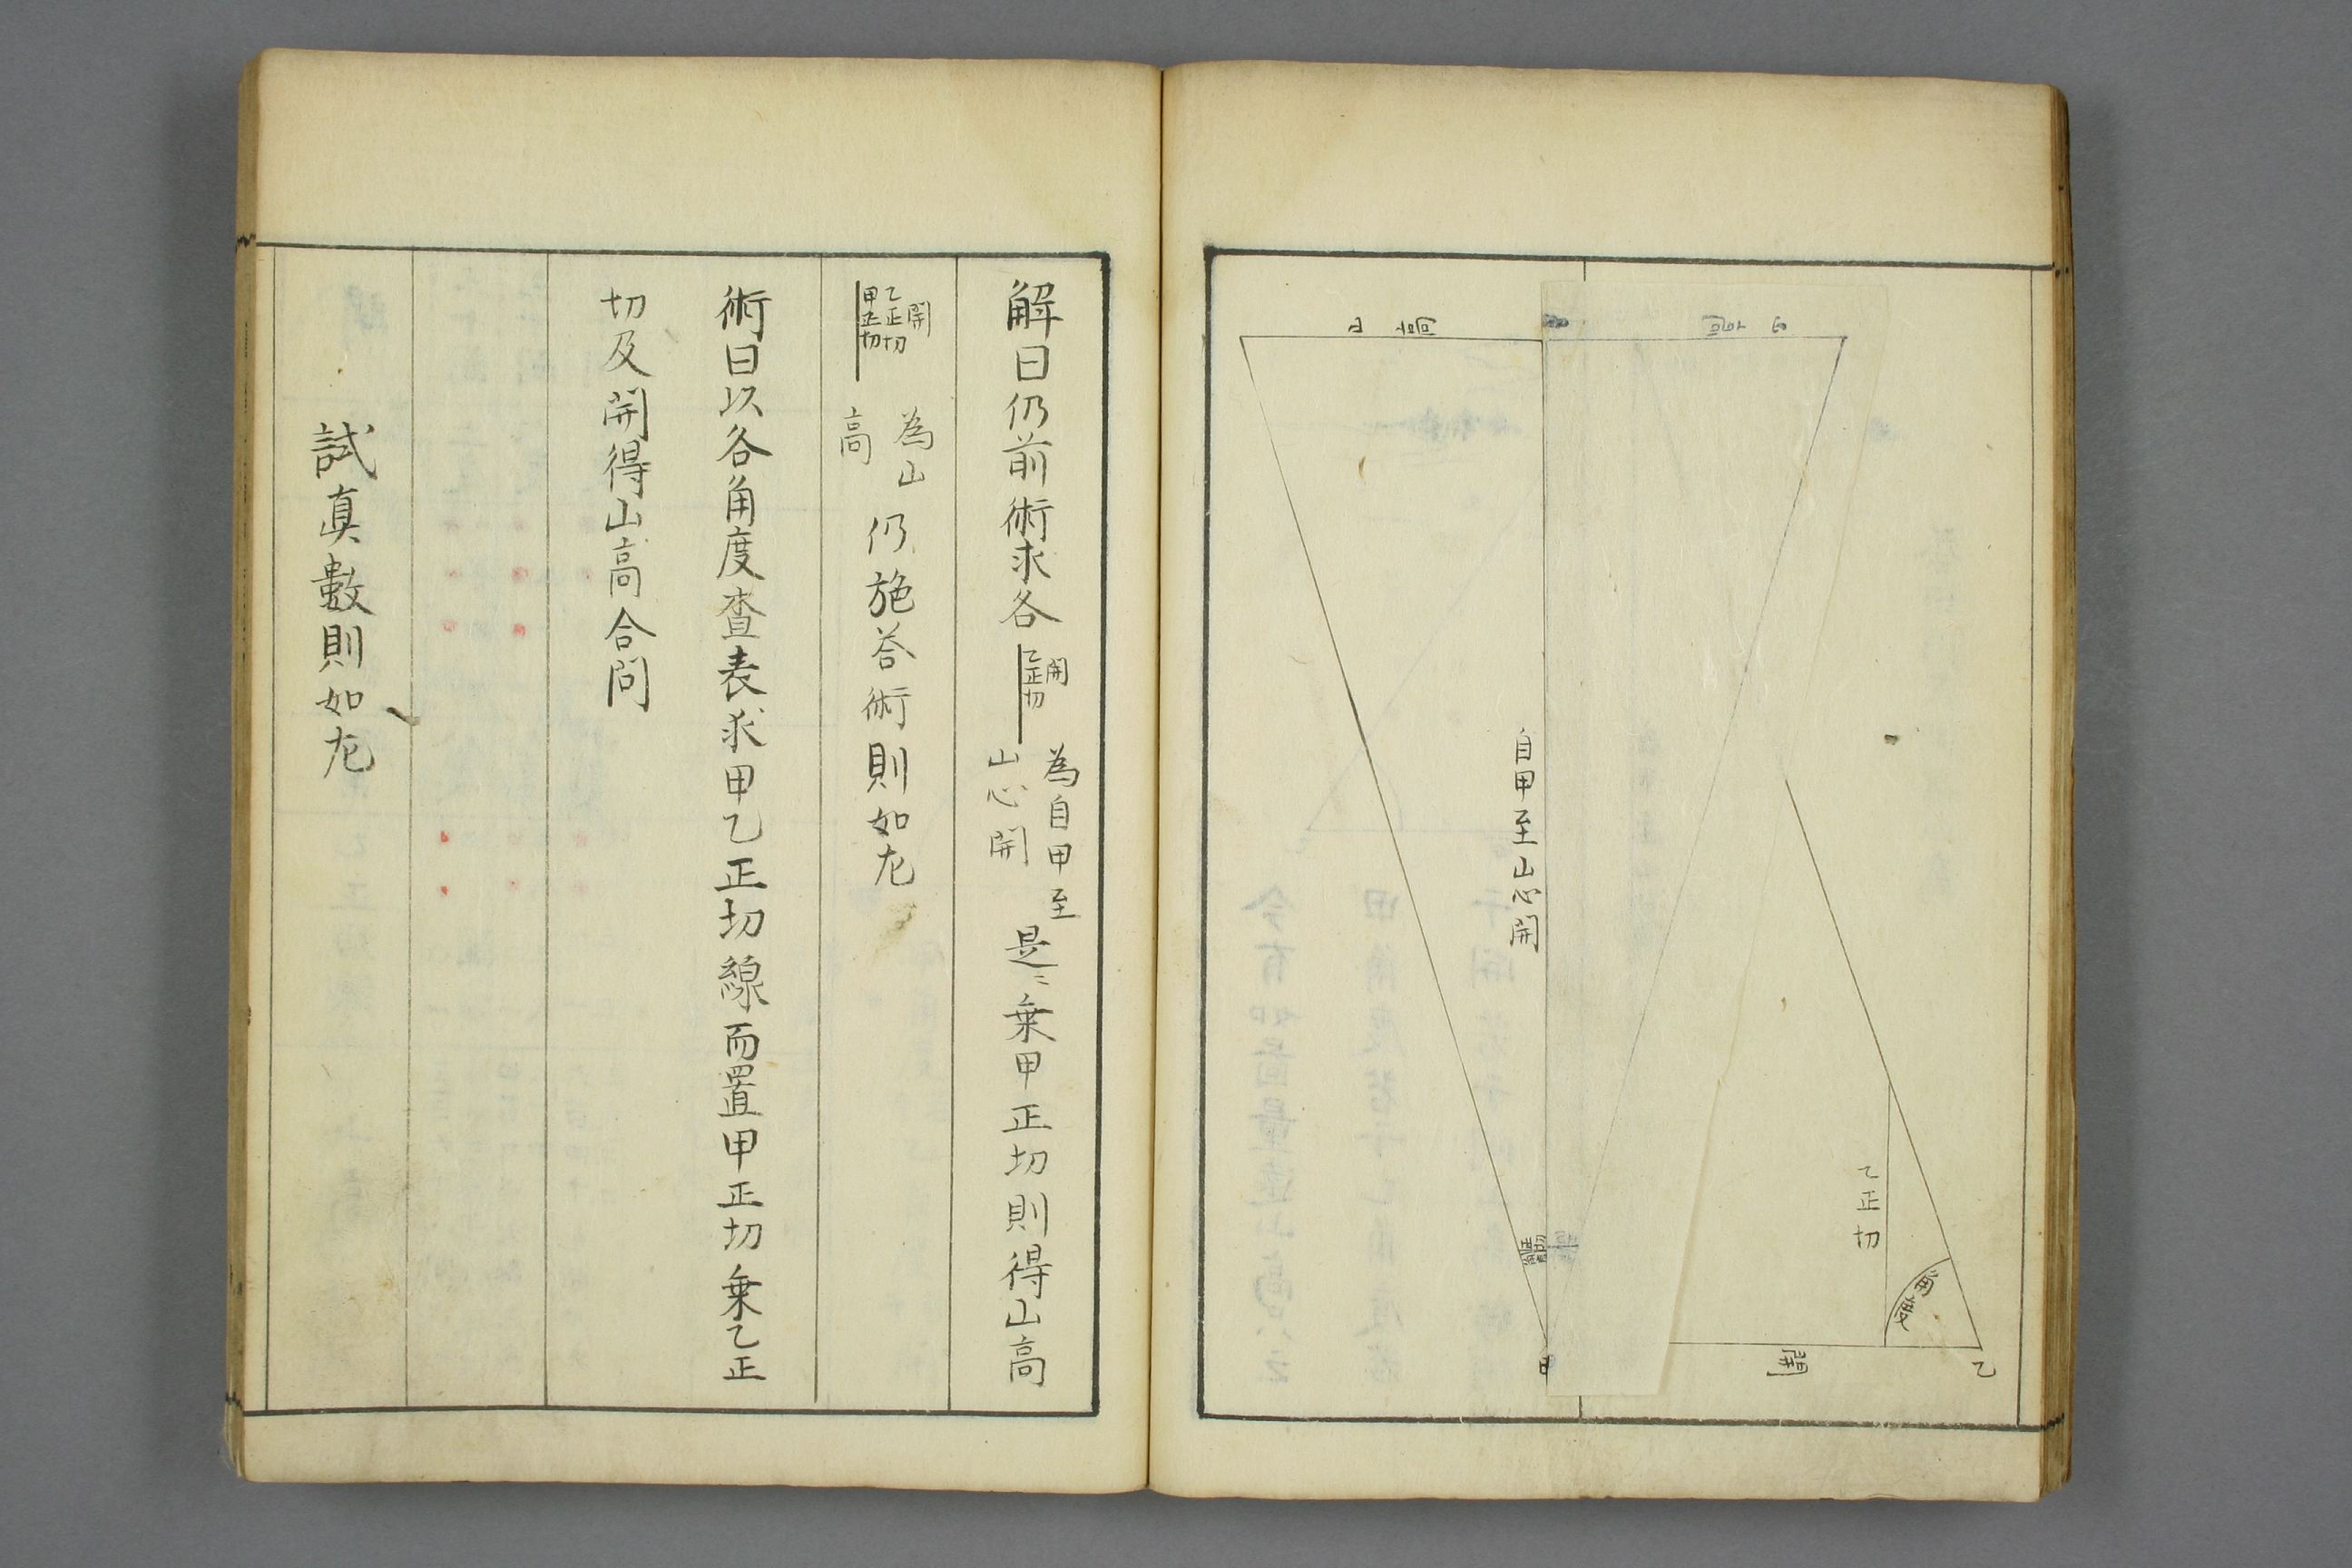 自甲至山心開
乙正切
角度
開
乙
甲
解曰仍前術求各
開
乙正切
為自甲至
山心開
是〻乗甲正切則得山高
開
乙正切
甲正切
為山
高
仍施荅術則如左
術曰以各角度査表求甲乙正切線而置甲正切乗乙正
切及開得山高合問
試真數則如左